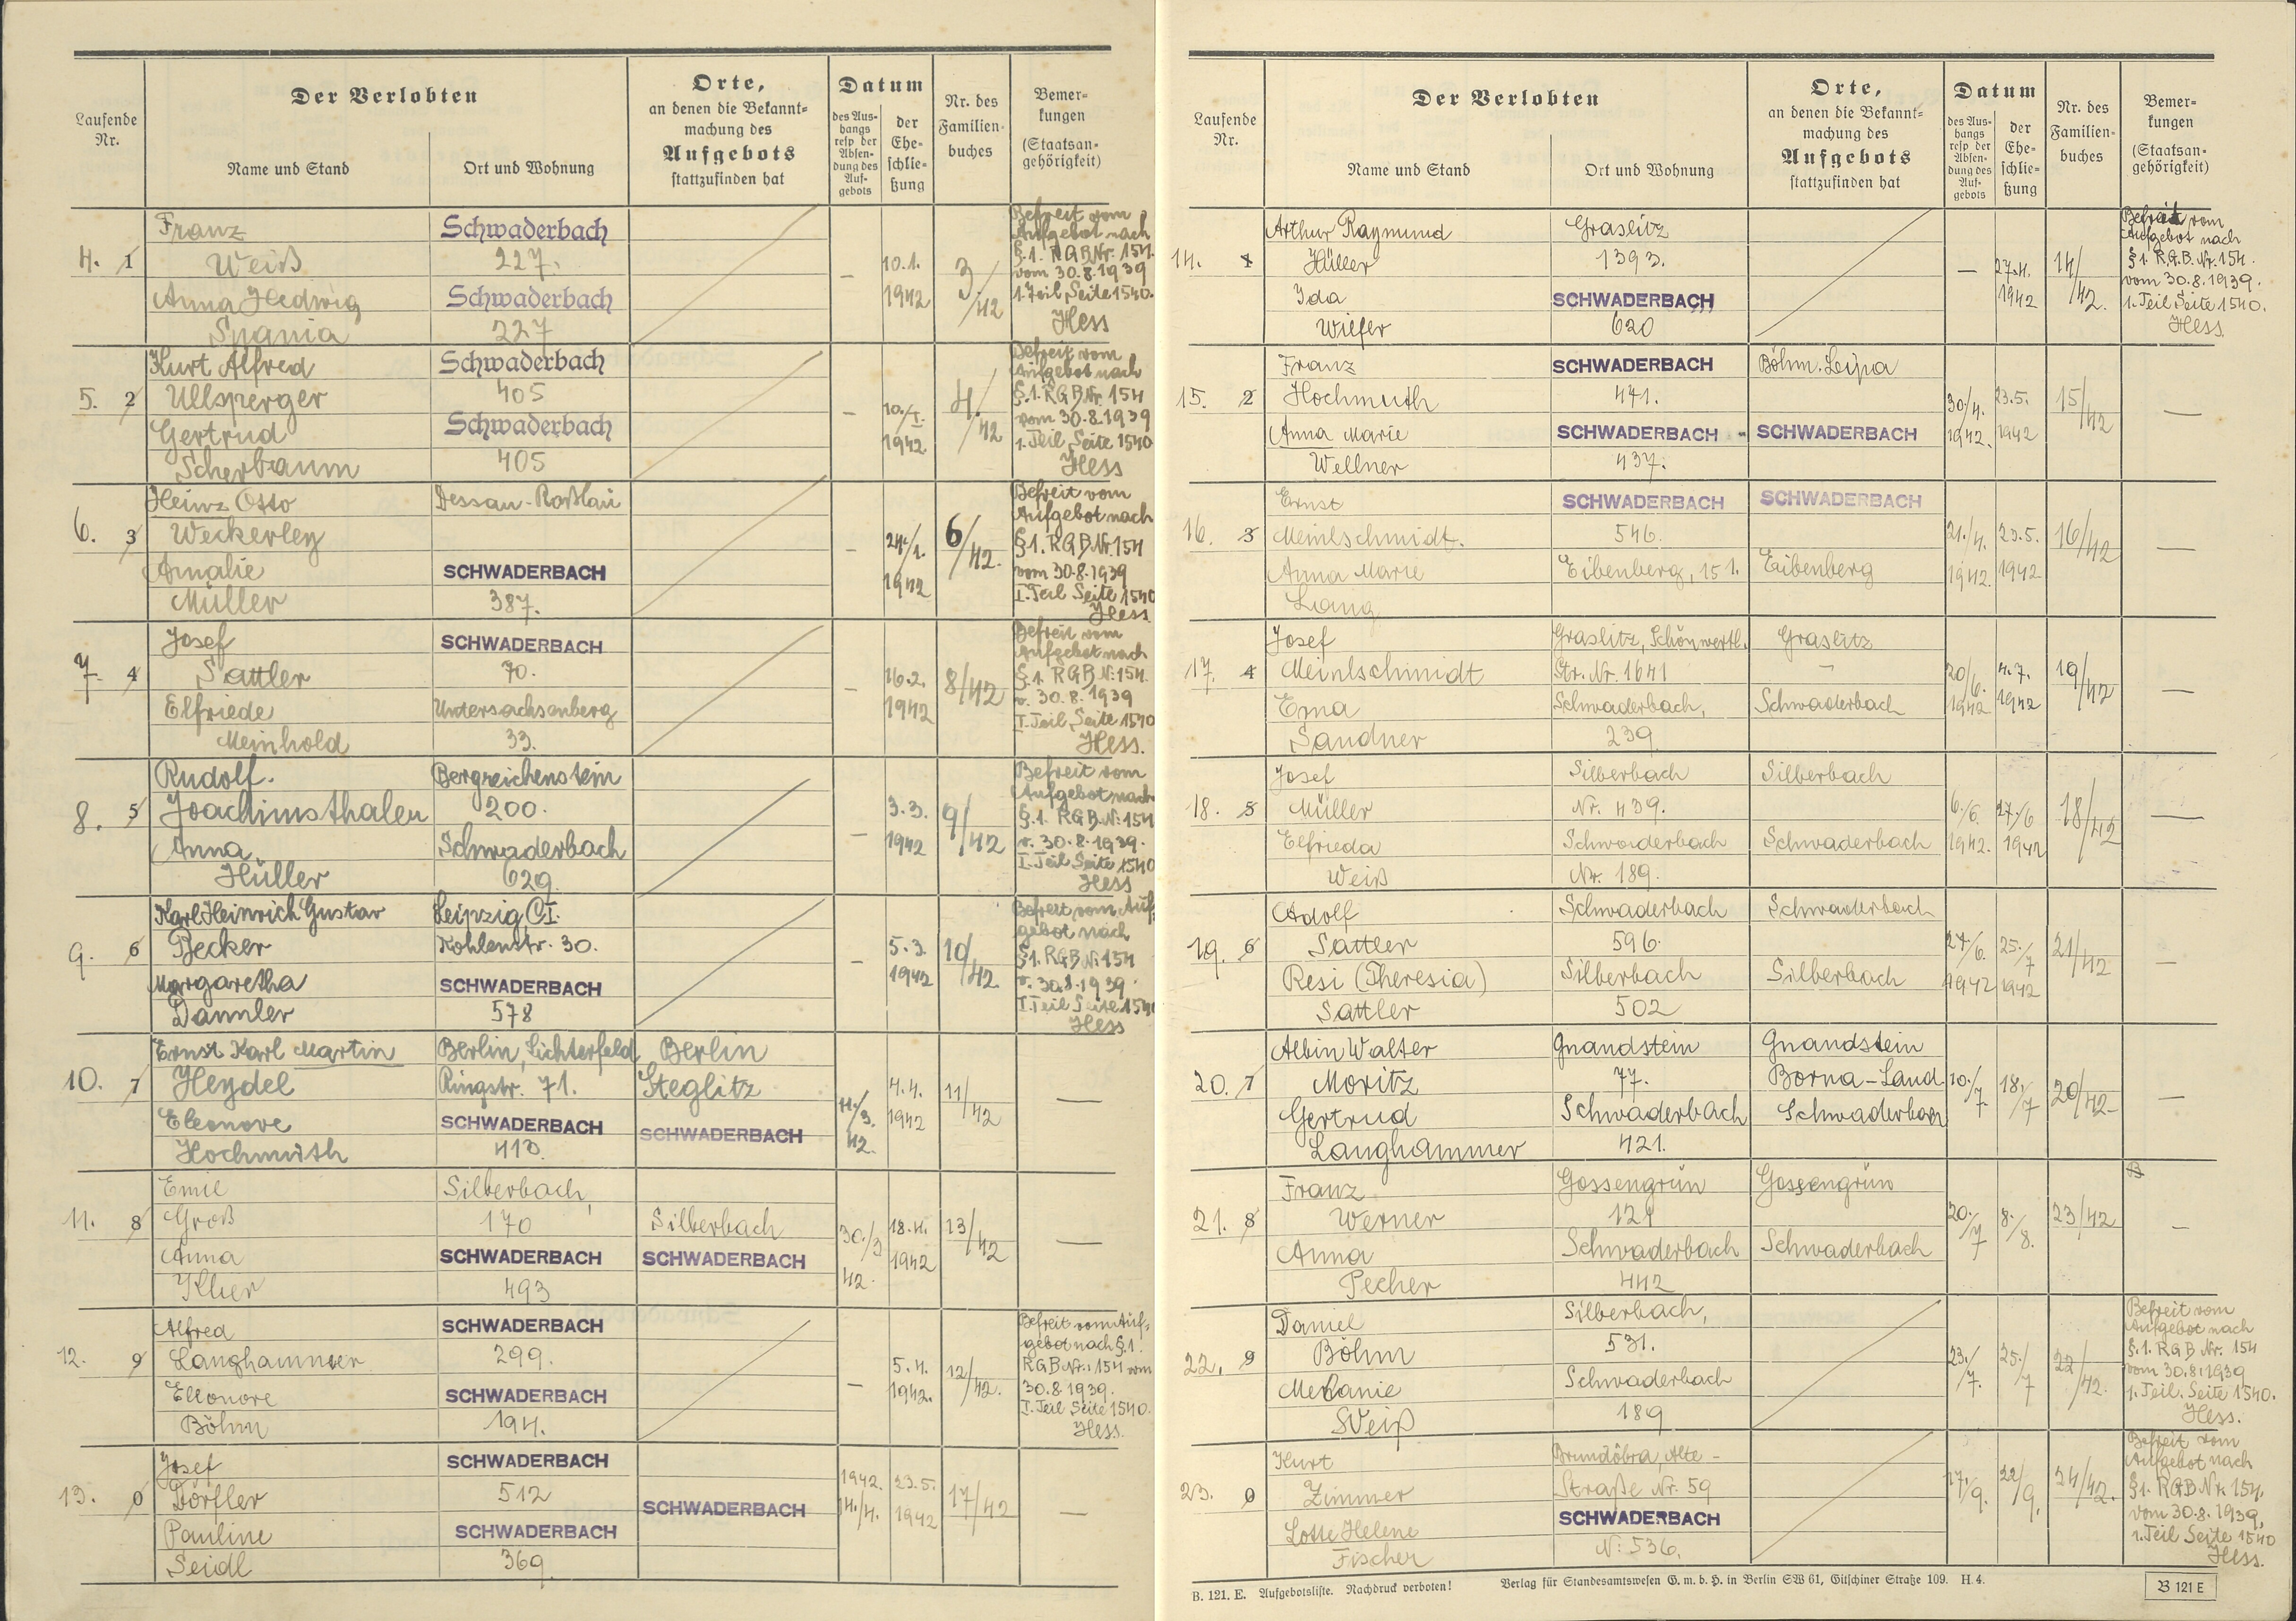 Laufende
Nr.
Der Verlobten
Name und Stand
Ort und Wohnung
Orte,
an denen die Bekannt=
machung des
Aufgebots
stattzufinden hat
Datum
des Aus-
hangs
resp der
Absen-
dung des
Auf-
gebots
der
Ehe=
schlie=
ßung
Nr. des
Familien-
buches
Bemer=
kungen
(Staatsan-
gehörigkeit)
4. 1
Franz
Weiß
Anna Hedwig
Spania
Schwaderbach
227.
Schwaderbach
227
–
10.1.
1942
3/42
Befreit vom
Aufgebot nach
§.1. RGB Nr. 154.
vom 30.8.1939
1. Teil, Seite 1540.
Hess
5. 2
Kurt Alfred
Ullsperger
Gertrud
Scherbaum
Schwaderbach
405
Schwaderbach
405
–
10./I.
1942
4./42
Befreit vom
Aufgebot nach
§.1. RGB Nr. 154
vom 30.8.1939
1. Teil, Seite 1540
Hess
6. 3
Heinz Otto
Weckerley
Amalie
Müller
Dessau-Roßlau
SCHWADERBACH
387.
–
24./1.
1942
6/42.
Befreit vom
Aufgebot nach
§1. RGB Nr. 154
vom 30.8.1939
I. Teil Seite 1540
Hess
7. 4
Josef
Sattler
Elfriede
Meinhold
SCHWADERBACH
70.
Untersachsenberg
33.
–
16.2.
1942
8/42
Befreit vom
Aufgebot nach
§.1. RGB N: 154.
v. 30.8.1939
I. Teil, Seite 1540
Hess.
8. 5
Rudolf.
Joachimsthaler
Anna
Hüller
Bergreichenstein
200.
Schwaderbach
629.
–
3.3.
1942
9/42
Befreit vom
Aufgebot nach
§.1. RGB. N: 154
v. 30.8.1939.
I. Teil Seite 1540
Hess
9. 6
Karl Heinrich Gustav
Becker
Margaretha
Dannler
Leipzig C I.
Kohlenstr. 30.
SCHWADERBACH
578
–
5.3.
1942
10/42
Befreit vom Auf=
gebot nach
§1. RGB N: 154
v. 30.8.1939.
I. Teil Seite 1540
Hess
10. 7
Ernst Karl Martin
Heydel
Eleonore
Hochmuth
Berlin, Lichterfeld
Ringstr. 71.
SCHWADERBACH
413.
Berlin
Steglitz
SCHWADERBACH
11./3.
42.
4.4.
1942
11/42
—
11. 8
Emil
Groß
Anna
Klier
Silberbach,
170
SCHWADERBACH
493
Silberbach
SCHWADERBACH
30./3
42.
18.4.
1942
13/42
—
12. 9
Alfred
Langhammer
Elleonore
Böhm
SCHWADERBACH
299.
SCHWADERBACH
194.
–
5.4.
1942.
12/42.
Befreit vom Auf=
gebot nach §.1.
RGB Nr.: 154 vom
30.8.1939.
I. Teil Seite 1540.
Hess.
13. 0
Josef
Dörfler
Pauline
Seidl
SCHWADERBACH
512
SCHWADERBACH
369.
SCHWADERBACH
1942.
14./4.
23.5.
1942
17/42
—
Laufende
Nr.
Der Verlobten
Name und Stand
Ort und Wohnung
Orte,
an denen die Bekannt=
machung des
Aufgebots
stattzufinden hat
Datum
des Aus-
hangs
resp der
Absen-
dung des
Auf-
gebots
der
Ehe=
schlie=
ßung
Nr. des
Familien-
buches
Bemer=
kungen
(Staatsan-
gehörigkeit)
14. 1
Arthur Raymund
Hüller
Ida
Wiefer
Graslitz
1393.
SCHWADERBACH
620
–
27.4.
1942
14/42.
Befreit vom
Aufgebot nach
§1. R.G.B. Nr. 154.
vom 30.8.1939.
1. Teil Seite 1540.
Hess.
15. 2
Franz
Hochmuth
Anna Marie
Wellner
SCHWADERBACH
471.
SCHWADERBACH -
437.
Böhm. Leipa
SCHWADERBACH
30/4.
1942.
23.5.
1942
15/42
—
16. 3
Ernst
Meinlschmidt.
Anna Marie
Lang
SCHWADERBACH
546.
Eibenberg, 151.
SCHWADERBACH
Eibenberg
21./4.
1942.
23.5.
1942
16/42
—
17. 4
Josef
Meinlschmidt
Erna
Sandner
Graslitz, Schönwertl.
Str. Nr. 1641
Schwaderbach,
239
Graslitz
–
Schwaderbach
20/6.
1942
4.7.
1942
19/42
—
18. 5
Josef
Müller
Elfrieda
Weiß
Silberbach
Nr. 439.
Schwaderbach
Nr. 189.
Silberbach
Schwaderbach
6./6.
1942.
27./6
1942
18/42
—
19. 6
Adolf
Sattler
Resi (Theresia)
Sattler
Schwaderbach
596.
Silberbach
502
Schwaderbach
Silberbach
27./6.
1942
25./7
1942
21/42
—
20. 7
Albin Walter
Moritz
Gertrud
Langhammer
Gnandstein
77.
Schwaderbach
421.
Gnandstein
Borna-Land
Schwaderbach
10./7
18./7
20/42-
—
21. 8
Franz
Werner
Anna
Pecher
Gossengrün
121
Schwaderbach
442
Gossengrün
Schwaderbach
20./7
8./8.
23/42
B
—
22. 9
Daniel
Böhm
Melanie
Weiß
Silberbach,
531.
Schwaderbach
189
23./7.
25./7
22/42.
Befreit vom
Aufgebot nach
§.1. RGB Nr. 154
vom 30.8.1939
1. Teil. Seite 1540.
Hess.
23. 0
Kurt
Zimmer
Lotte Helene
Fischer
Brundöbra, Alte-
Straße Nr. 59
SCHWADERBACH
N: 536.
17./9.
22/9.
24/42.
Befreit vom
Aufgebot nach
§1. RGB Nr. 154.
vom 30.8.1939,
1. Teil Seite 1540
Hess.
B. 121. E. Aufgebotsliste. Nachdruck verboten!
Verlag für Standesamtswesen G. m. b. H. in Berlin SW 61, Gitschiner Straße 109. H 4.
B 121 E